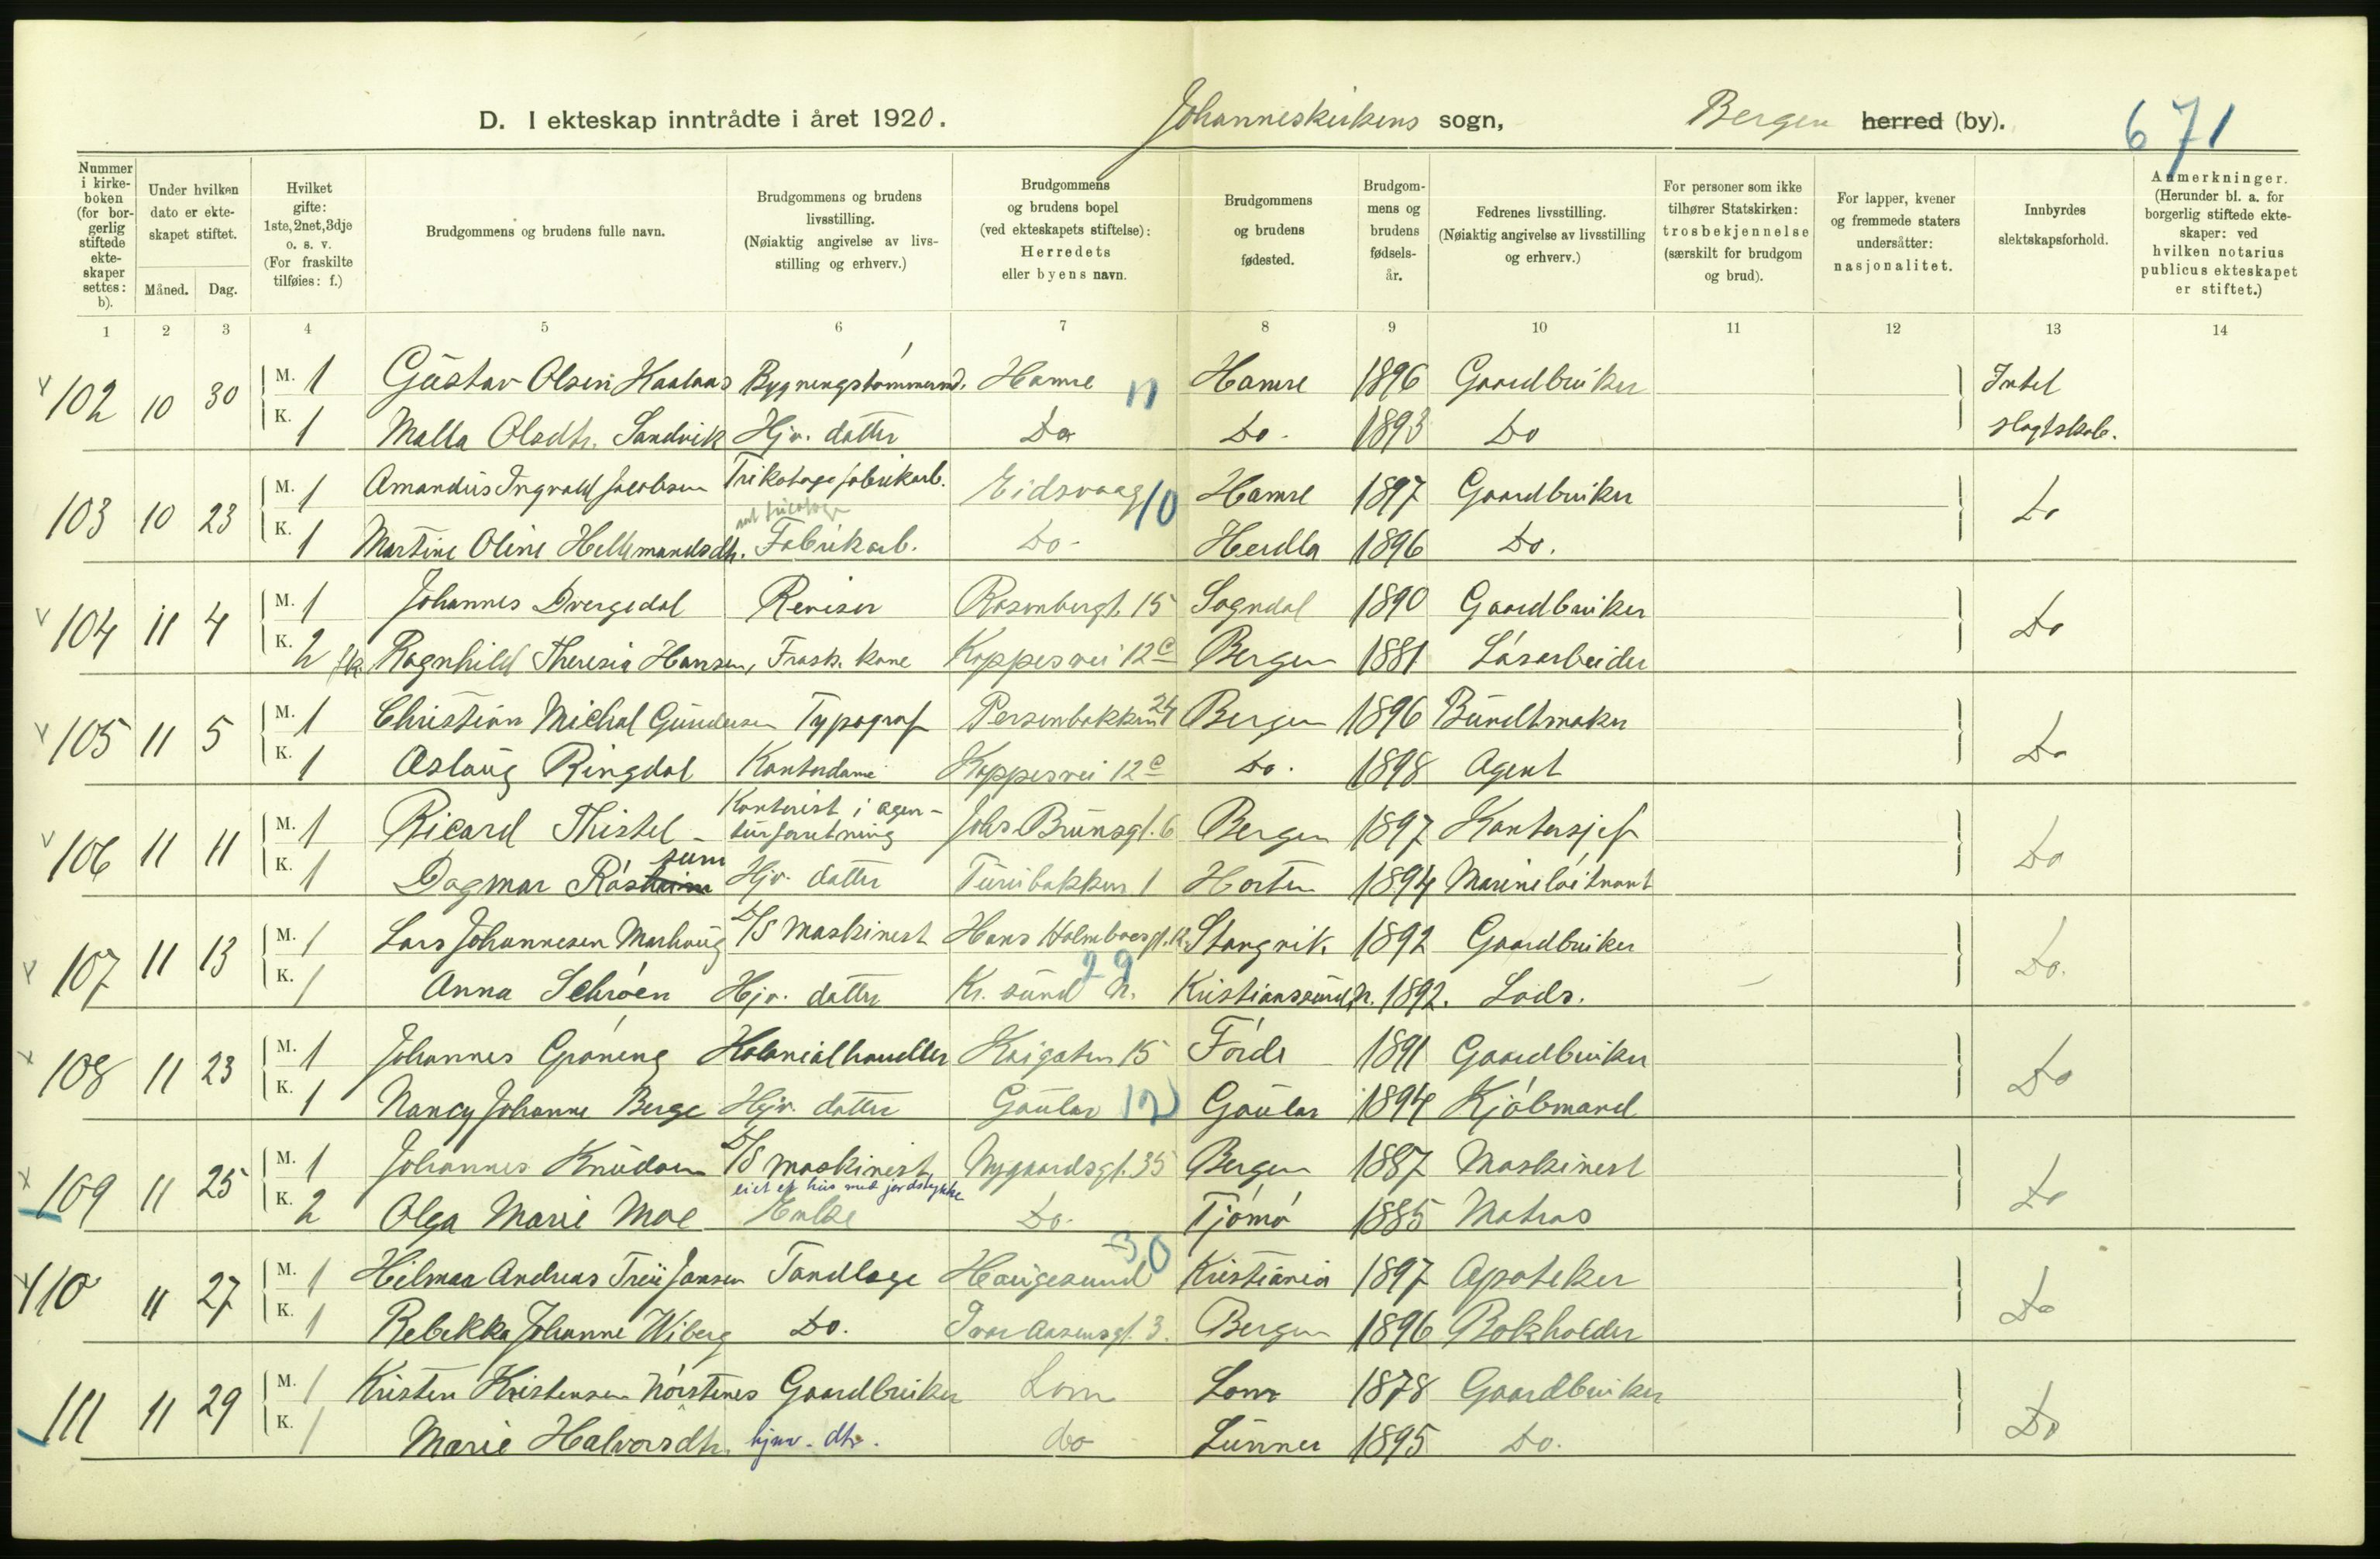 D. I ekteskap inntrådte i året 1920. Johanneskirkens sogn, Bergen herred (by). 671
Nummer i kirke-boken (for bor-gerlig stiftede ekte-skaper settes: b).
Under hvilken dato er ekte-skapet stiftet.
Måned. Dag.
Hvilket gifte: 1ste, 2net, 3dje o. s. v. (For fraskilte tilføies: f.)
Brudgommens og brudens fulle navn.
Brudgommens og brudens livsstilling. (Nøiaktig angivelse av livs-stilling og erhverv.)
Brudgommens og brudens bopel (ved ekteskapets stiftelse): Herredets eller byens navn.
Brudgommens og brudens fødested.
Brudgom-mens og brudens fødsels-år.
Fedrenes livsstilling. (Nøiaktig angivelse av livsstilling og erhverv.)
For personer som ikke tilhører Statskirken: trosbekjennelse (særskilt for brudgom og brud).
For lapper, kvener og fremmede staters undersåtter: nasjonalitet.
Innbyrdes slektskapsforhold.
Anmerkninger. (Herunder bl. a. for borgerlig stiftede ekte-skaper: ved hvilken notarius publicus ekteskapet er stiftet.)
1 2 3 4 5 6 7 8 9 10 11 12 13 14
102 10 30 M. 1 Gustav Olsen Haalaas Bygningstømmermd. Hamre 11 Hamre 1896 Gaardbruker Intet
K. 1 Malla Olsdtr. Sandvik Hjv. datter Do Do. 1893 Do slagtskab.
103 10 23 M. 1 Amandus Ingvald Jacobsen Trikotagefabrikarb. Eidsvaag 10 Hamre 1897 Gaardbruker Do
K. 1 Martine Oline Hellemandsdtr. Fabrikarb. Do. Herdla 1896 Do.
104 11 4 M. 1 Johannes Dvergedal Revisor Rosenbergt. 15 Sogndal 1890 Gaardbruker Do
K. 2 fk. Ragnhild Theresia Hansen, Frask. kone Koppesvei 12c Bergen 1881 Låsarbeider
105 11 5 M. 1 Christian Michal Gundersen Typograf Persenbakken 24 Bergen 1896 Bundtmaker Do
K. 1 Aslaug Ringdal Kontordame Koppesvei 12c Do. 1898 Agent
106 11 11 M. 1 Ricard Thistel Kontorist i agen-turforretning Johs Brunsgt. 6 Bergen 1897 Kontorsjef Do
K. 1 Dagmar Røs sum Hjv. datter Turubakken 1 Horten 1894 Marineløitnant
107 11 13 M. 1 Lars Johannesen Marhaug D/S Maskinist Hans Holmboesgt. Stangvik 1892 Gaardbruker Do.
K. 1 Anna Schrøen Hjv. datter Kr. sund N. 29 Kristianssund N. 1892. Lods.
108 11 23 M. 1 Johannes Grøneng Kolonialhandler Kaigaten 15 Førde 1891 Gaardbruker Do
K. 1 Nancy Johanne Berge Hjv. datter Gaular 12 Gaular 1894 Kjøbmand
109 11 25 M. 1 Johannes Knudsen D/S maskinist Nygaardsgt. 35 Bergen 1887 Maskinist Do
eiet et hus med jordstykke
K. 2 Olga Marie Moe Enke Do. Tjømø 1885 Matros
110 11 27 M. 1 Hilmar Andreas Treu Jansen Tandlæge Haugesund 30 Kristiania 1897 Apoteker Do
K. 1 Rebekka Johanne Wiberg Do. Ivar Aasensgt. 3. Bergen 1896 Bokholder
111 11 29 M. 1 Kristen Kristensen Nørstenes Gaardbruker Lom Lom 1878 Gaardbruker Do
K. 1 Marie Halvorsdtr. hjmv. dtr. do Lunner 1895 Do.